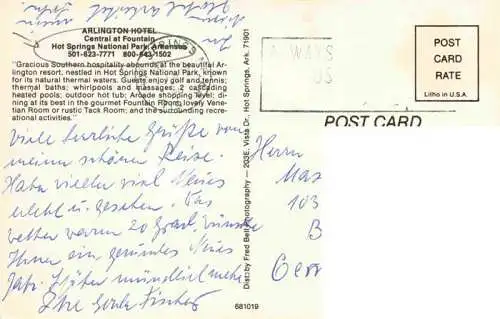 ARLINGTON HOTEL
Central at Fountain
Hot Springs National Park, Arkansas
501-623-7771 800-643-1502
"Gracious Southern hospitality abounds at the beautiful Ar-
lington resort, nestled in Hot Springs National Park, known
for its natural thermal waters. Guests enjoy golf and tennis;
thermal baths; whirlpools and massages; 2 cascading
heated pools; outdoor hot tub; Arcade shopping level; di-
ning at its best in the gourmet Fountain Room, lovely Vene-
tian Room or rustic Tack Room; and the surrounding recre-
ational activities."
Viele herzliche Grüße von
meiner schönen Reise.
Habe viel Neues
erlebt u. gesehen. Das
Wetter waren 20 Grad, wünsche
Ihnen ein gesundes Neues
Jahr. Später mündlich mehr
Ihre Fischer
681019
Dist by Fred Bell Photography — 203E. Vista Dr., Hot Springs, Ark. 71901
POST
CARD
RATE
Litho in U.S.A.
POST CARD
Herrn
Max
103
B
Germ